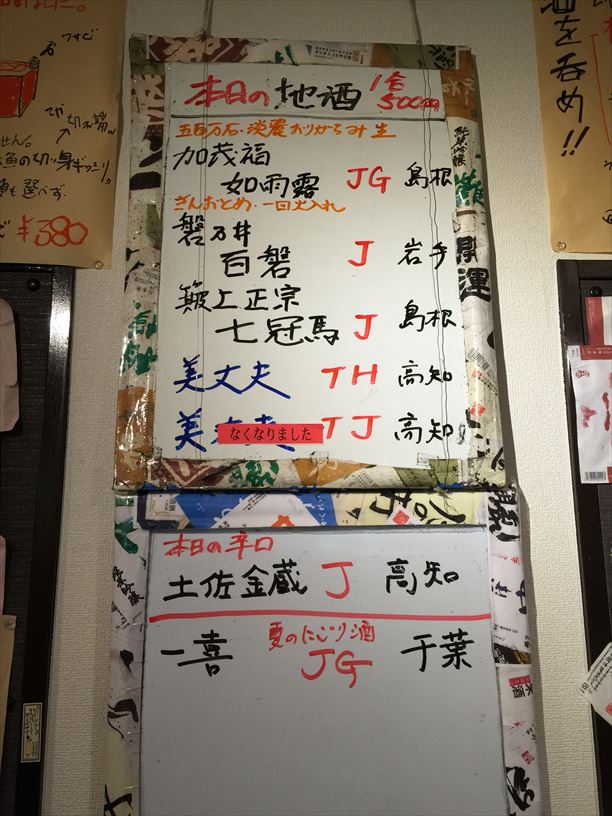 本日の地酒 1合500円
五百万石・淡麗おりがらみ生
加茂福
如雨露 JG 島根
ぎんおとめ・一回火入れ
磐乃井
百磐 J 岩手
簸上正宗
七冠馬 J 島根
美丈夫 TH 高知
美丈夫 TJ 高知
なくなりました
本日の辛口
土佐金蔵 J 高知
夏のにごり酒
一喜 JG 千葉
¥380
を呑め!!